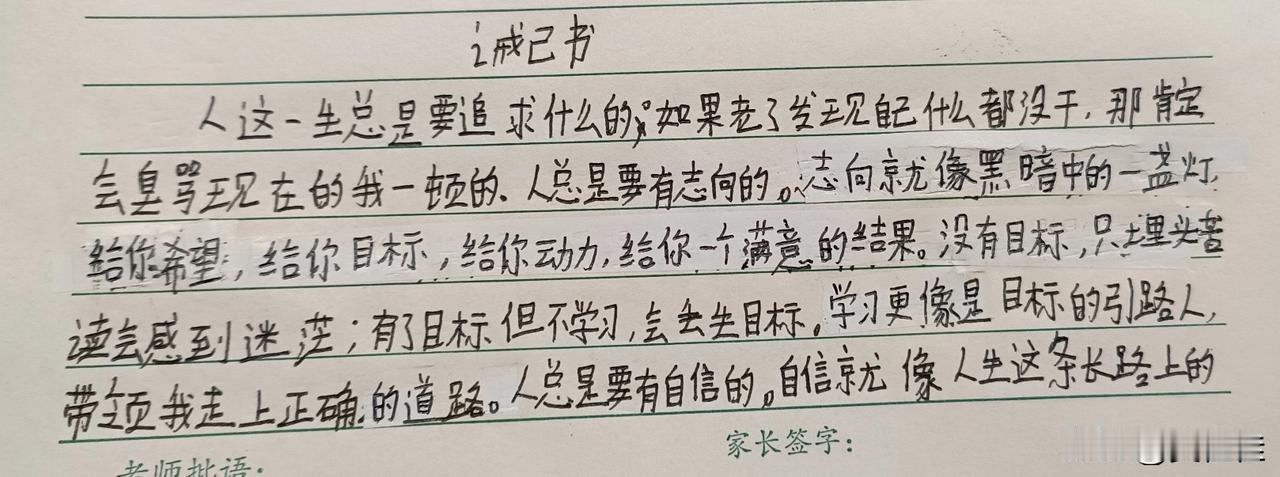 诫己书
人这一生总是要追求什么的,如果老了发现自己什么都没干,那肯定
会臭骂现在的我一顿的.人总是要有志向的。志向就像黑暗中的一盏灯,
给你希望,给你目标,给你动力,给你一个满意的结果。没有目标,只埋头苦
读会感到迷茫;有了目标但不学习,会丢失目标。学习更像是目标的引路人,
带领我走上正确的道路。人总是要有自信的。自信就像人生这条长路上的
家长签字:
老师批语: